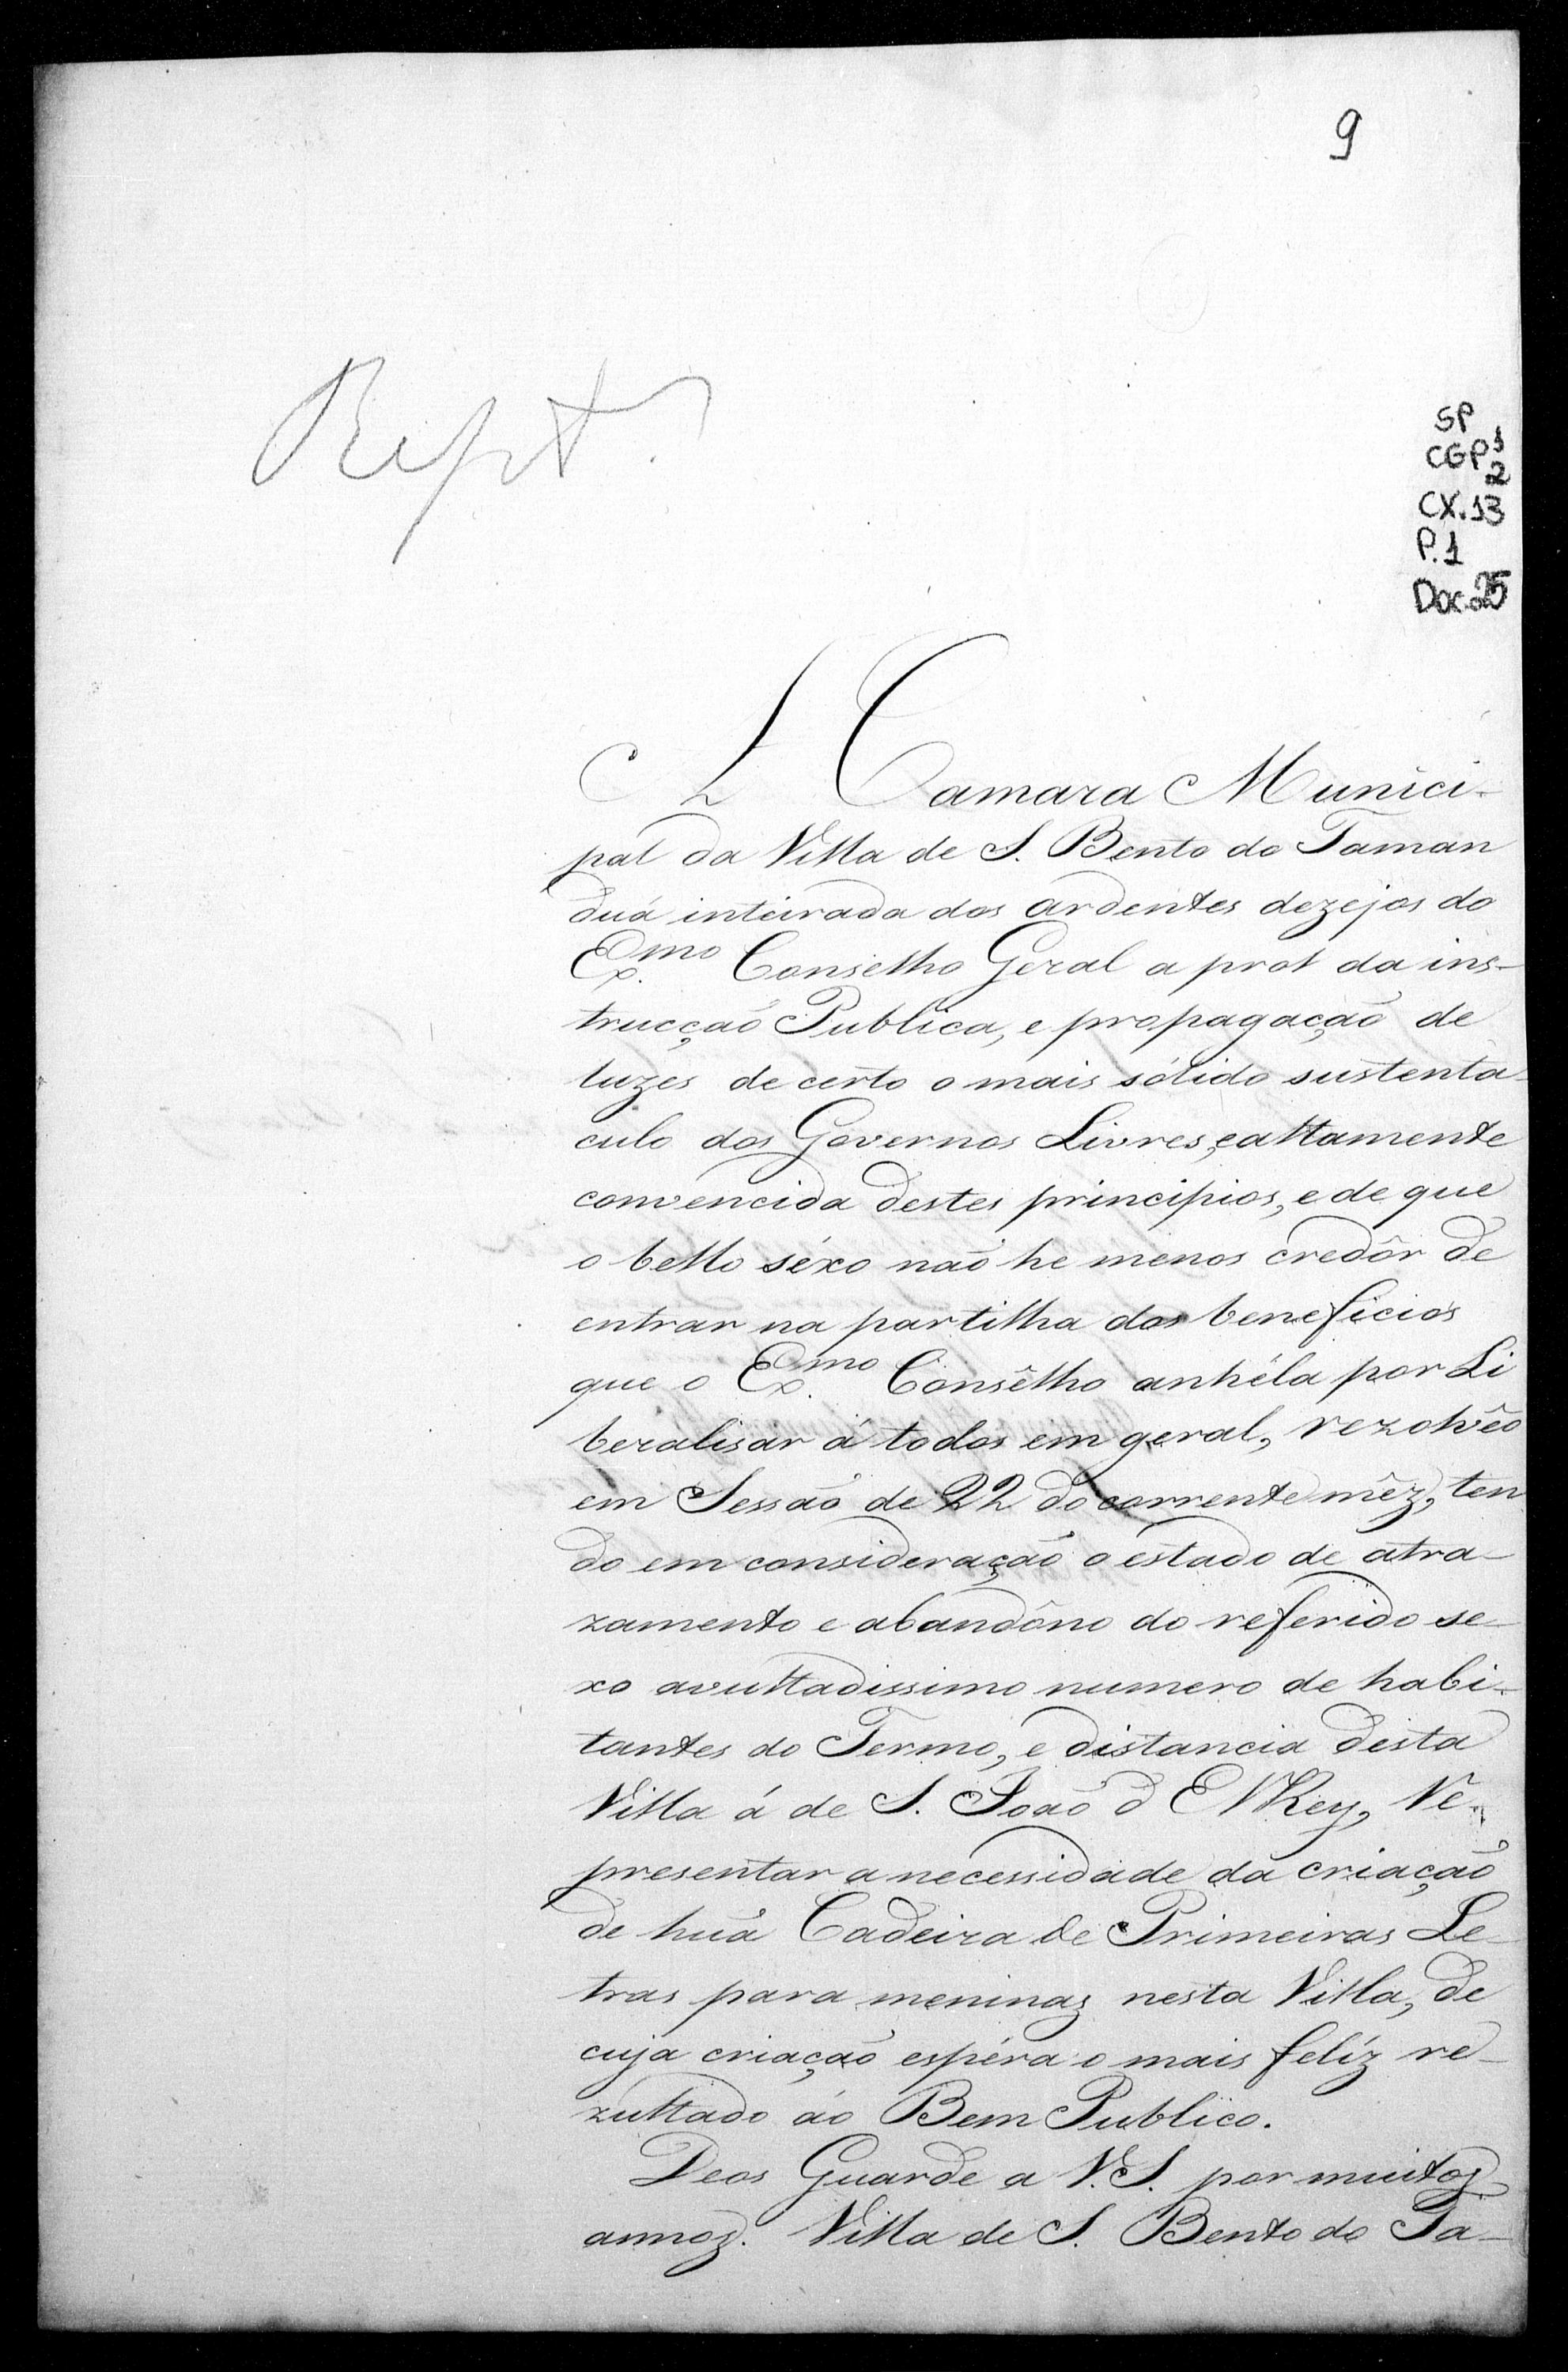 9
Rept.
SP
CGP 1
2
CX. 13
P. 1
Doc. 25
A Camara Munici-
pal da Villa de S. Bento do Taman
duá inteirada dos ardentes dezejos do
Ex.mo Conselho Geral a prol da ins-
trucção Publica, e propagação de
luzes de certo o mais sólido sustenta-
culo dos Governos Livres, e altamente
convencida destes principios, e de que
o bello séxo não he menos credôr de
entrar na partilha dos beneficios
que o Ex.mo Consêlho anhéla por Li
beralisár á todos em geral, rezolvêo
em Sessão de 22 do corrente mêz, ten
do em consideração o estado de atra-
zamento e abandôno do referido se-
xo avultadissimo numero de habi-
tantes do Termo, e distancia desta
Villa á de S. João d'ElRey, Re-
presentar a necessidade da criação
de huã Cadeira de Primeiras Le-
tras para meninas nesta Villa, de
cuja criação espéra o mais felíz re-
zultado áo Bem Publico.
Deos Guarde a V.S. por muitos
annos. Villa de S. Bento do Ta-